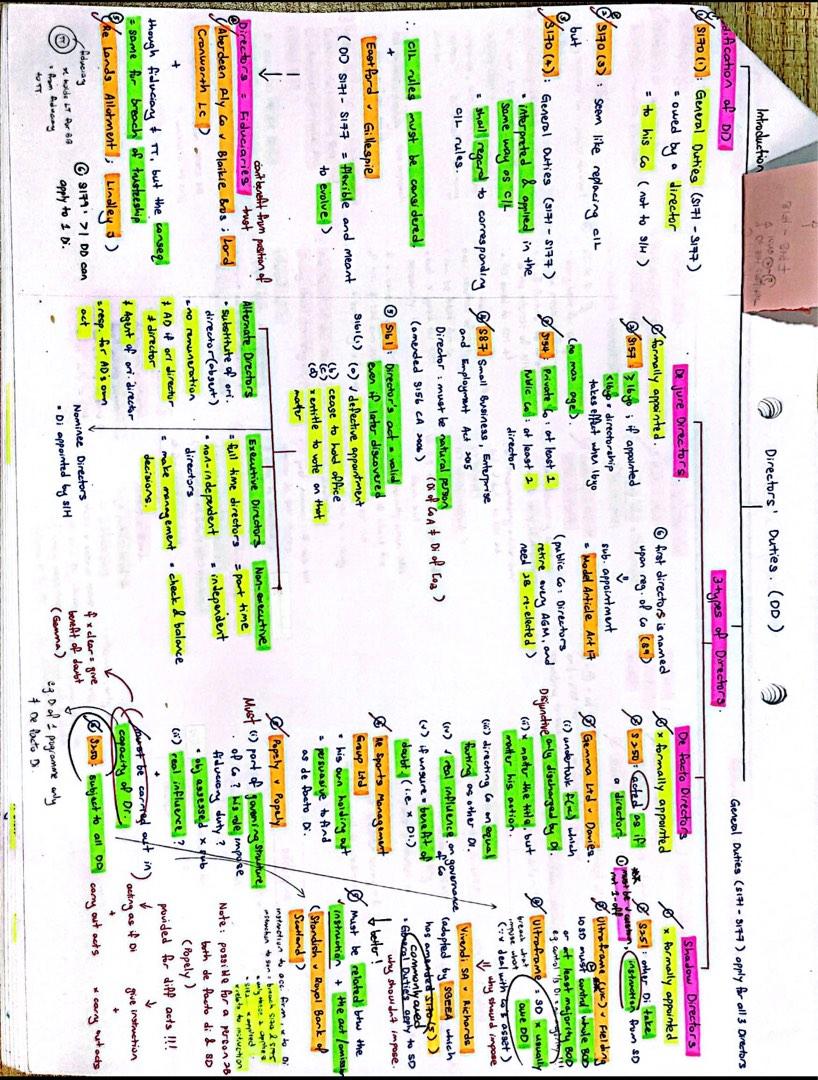 Directors' Duties. (DD)
General Duties (S171 - S177) apply for all 3 Directors
Introduction
3 types of Directors.
① S170(1) : General Duties (S171 - S177)
= owed by a director
= to his Co (not to S/H)
② S170(3) : seem like replacing C/L
but
③ S170(4) : General Duties (S171 - S177)
= interpreted & applied in the
same way as C/L
= shall regard to corresponding
C/L rules.
∴ C/L rules must be considered
+
Eastford v Gillespie
(DD S171 - S177 = flexible and meant
to evolve)
Directors = Fiduciaries
can't benefit from position of
trust
④ Aberdeen Rly Co v Blaikie Bros ; Lord
Cranworth LC
+
though fiduciary ≠ TT, but the conseq
= same for breach of trusteeship
⑤ Re Lands Allotment ; Lindley J
⑥ S179 : >1 DD can
apply to 1 Di.
De jure Directors.
① formally appointed.
② S157 >16yo ; if appointed
<16yo = directorship
takes effect when 16yo
(no max age).
③ S154 Private Co : at least 1
Public Co : at least 2
director
④ S87 Small Business, Enterprise
and Employment Act 2015
Director : must be natural person
(amended S156 CA 2006)
(Di of CoA ≠ Di of Co2)
⑤ S161 : Director's act = valid
even if later discovered
S161(1) (a) ✓ defective appointment
(b)
(c) cease to hold office
(d) x entitle to vote on that
matter
⑥ first directors is named
upon reg. of Co (S9)
↓
sub. appointment
= Model Article Art 17
(public Co : Directors
retire every AGM, and
need 2B re-elected)
Alternate Directors
= substitute of ori.
director (absent)
= no remuneration
≠ AD if ori director
≠ director
≠ Agent of ori. director
= resp. for AD's own
act
Executive Directors
= full time directors
= non-independent
directors
= make management
decisions.
Non-executive
= part time
= independent
= check & balance
Nominee Directors
= Di appointed by S/H
De facto Directors
① x formally appointed
② S250 : acted as if
a director
③ Gemma Ltd v Davies.
(i) undertook f(x) which
only discharged by Di.
Disjunctive
(ii) x matter the title but
matter his action.
(iii) directing Co on equal
footing as other Di.
(iv) ✓ real influence on governance
of Co
(v) if unsure = benefit of
doubt (i.e x Di.)
④ Re Sports Management
Group Ltd
= his own holding out
= persuasive to find
as de facto Di
⑤ Popely v Popely
Must (i) part of governing structure
of Co ? his role impose
fiduciary duty ?
= obj assessed x sub
(ii) real influence ?
+
(cannot be carried out in)
capacity of Dr.
if x clear = give
benefit of doubt
(Gemma)
⑥ S250 subject to all DD
eg D of 1 programme only
≠ De facto Di.
Shadow Directors
① x formally appointed
② S251 : other Di take
instruction from SD
③ Ultraframe (UK) v Fielding
SD must control whole BOD
or at least majority BOD
④ Ultraframe = SD x usually
owe DD
(∵ x deal with Co's asset)
⇓ why should impose
Vivendi SA v Richards
(adopted by SBEEA which
has amended S170(5))
= General Duties apply to SD
commonly owed
↓ better
why shouldn't impose.
⑤ Must be related btw the
instruction + the act/omission
(Standish v Royal Bank of
Scotland)
Note : possible for a person 2B
both de facto di & SD
(Popely)
provided for diff acts !!!
acting as if Di
+
carry out acts
give instruction
+
x carry out acts